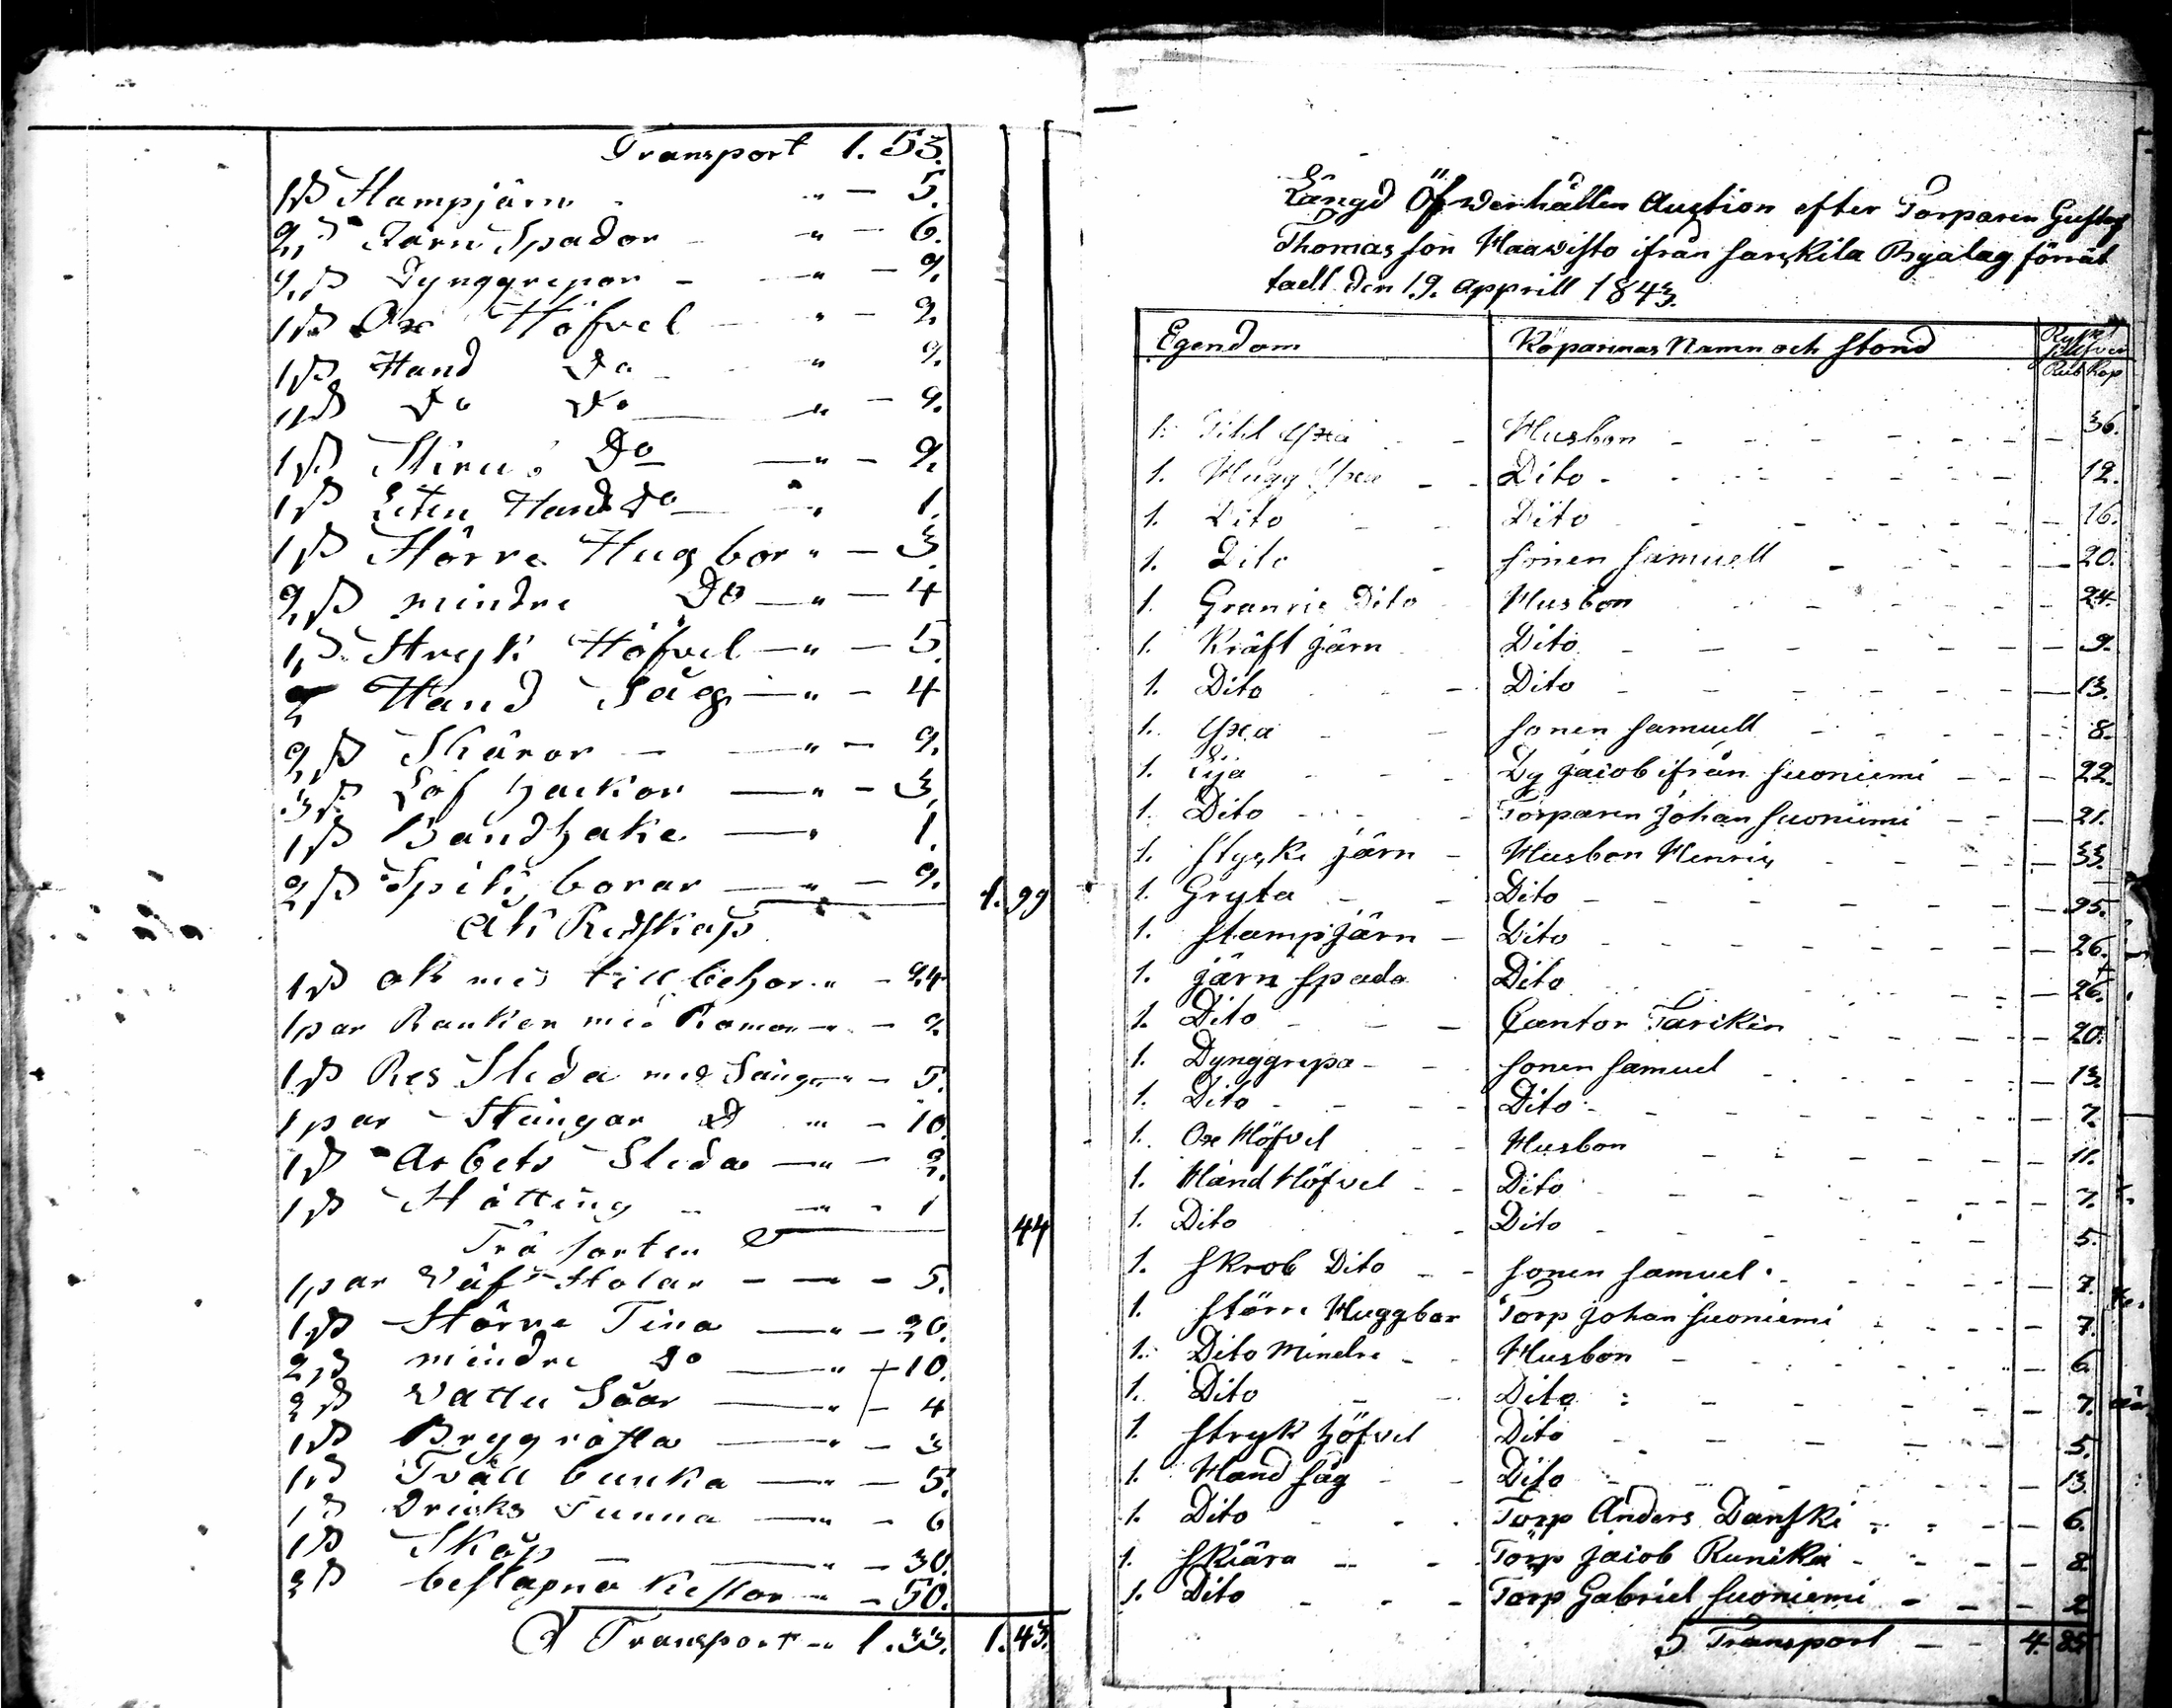 Transport 1. 53.
1 st Stampjärn " — 5.
2 st Järn Spador — " — 6.
2 st Dynggrepar — " — 2.
1 st Oxe Höfvel — " — 2
1 st Hand Do — " 2.
1 st Do Do — " — 2.
1 st Do — " — 2.
1 st Liten Hand Do — " 1.
1 st Större Hugbor " — 3
2 st mindre Do — " — 4
1 st Stryk Höfvel — " — 5.
2 Hand Såg — " — 4
2 st Skäror — — " — 2.
3 st Löf hackor — " — 3
1 st Bandhake — " 1.
2 st Spik borar — " — 2. 1. 99
Åk Redskap
1 st åk med tillbehör " — 24
1 par Rankor med — " — 2
1 st Res Släda med " — 5.
1 par Stängar " — 10.
1 st Arbets Släda — " — 2.
1 st Hötting — " — 1
44
Trä sorten
1 par Wäf Stolar — — — 5.
1 st Större Tina — " — 20.
2 st mindre do — " — 10.
2 st Vattu Såar — " — 4
1 st — " — 3
1 st Tväll bunka — " — 5.
1 st Dricks Tunna — " — 6
1 st Skåp — — — 30
3 st beslagna Kistor — " — 50.
Transport — " 1.33. 1. 43.
Längd Öfwerhållen Auction efter Torparen Gustaf
Thomas son Haavisto ifrån Sarkila Byalag förrät
tadt den 19. Apprill 1843.
Egendom Köparnas Namn och stond
Rub Kop
1. Yxa — — Husbon — 36.
1. Hugg Yxa — — Dito — 12.
1. Dito — — Dito — 16.
1. Dito — Sonen Samuell — 20.
1. Dito Husbon — 24.
1. Kräft järn Dito — 9.
1. Dito — Dito — 13.
1. Yxa — — Sonen Samuell — 8.
1. Lija — — Dy Jacob ifrån Suoniemi — 22.
1. Dito — — Torparen Johan Suoniemi — 21.
1. järn — Husbon Henric — 33.
1. Gryta — — Dito — 95.
1. Stampjärn — Dito — 26.
1. järn spada Dito — 26.
1. Dito — — Cantor — 20.
1. Dynggrepa — Sonen Samuel — 13.
1. Dito — — Dito — 7.
1. Oxe Höfvel — Husbon — 11.
1. Hand Höfvel — — Dito — 7.
1. Dito — Dito — 5.
1. Skrob Dito — — Sonen Samuel — 7.
1. Störri Huggbar Torp Johan Suoniemi — 7.
1. Dito Mindre — Husbon — 6.
1. Dito — — Dito — 7.
1. Stryk höfvel Dito — 5.
1. Hand såg — — Dito — 13.
1. Dito — — Torp Anders Danski — 6.
1. Skiära — — Torp Jacob Runika — 8.
1. Dito — — Torp Gabriel Suoniemi — 2
Transport — 4. 85